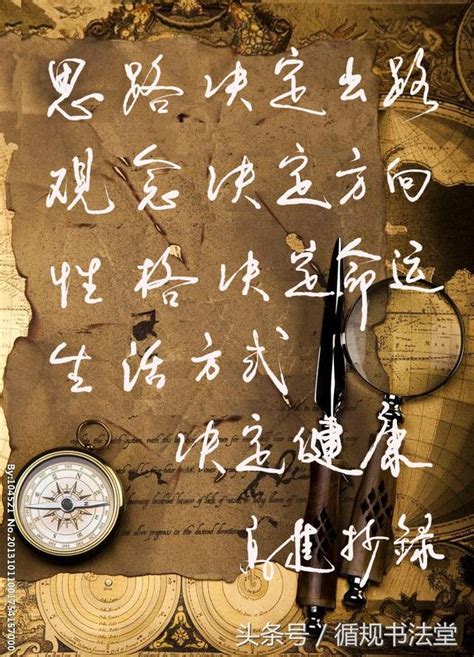 思路决定出路
观念决定方向
性格决定命运
生活方式
决定健康
抄録
头条号 / 循规书法堂
By:104521 No.20131011000175415​7000